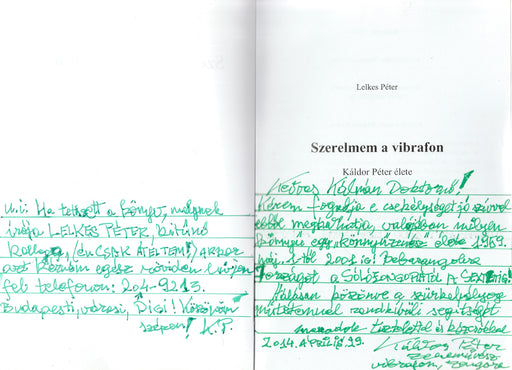 u.i: Ha tetszett a könyv, melynek
írója LELKES PÉTER kitűnő
kolléga, (én CSAK ÁTÉLTEM!) akkor
arra kérném egész röviden hívjon
fel telefonon: 204-9213.
Budapesti, városi, Díjsi! Köszönöm
szépen! K.P.
Lelkes Péter
Szerelmem a vibrafon
Káldor Péter élete
Kedves Kálmán Doktornő!
Kérem fogadja e csekélységet jó szívvel
ebbe megláthatja, valójában milyen
könnyű egy könnyűzenész élete 1969.
máj. 1-től 2001-ig! Bebarangolva
országot a SZÓLÓZONGORÁTÓL A SZEXTETTIG!
Hálásan köszönve a szürkehályog
műtétemnél rendkívüli segítségét
maradok tisztelettel és köszönettel
2014. ÁPRILIS 29. Káldor Péter
zeneművész
vibrafon, zongora